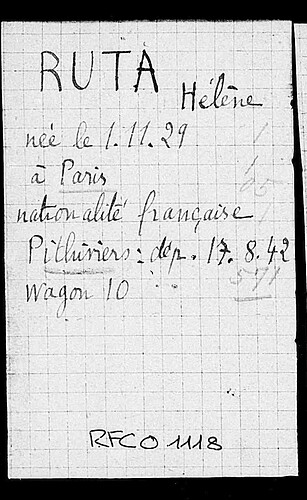 RUTA Hélène
née le 1.11.29
à Paris
nationalité française
Pithiviers : dép. 17. 8. 42
571
Wagon 10
RFCO 1118